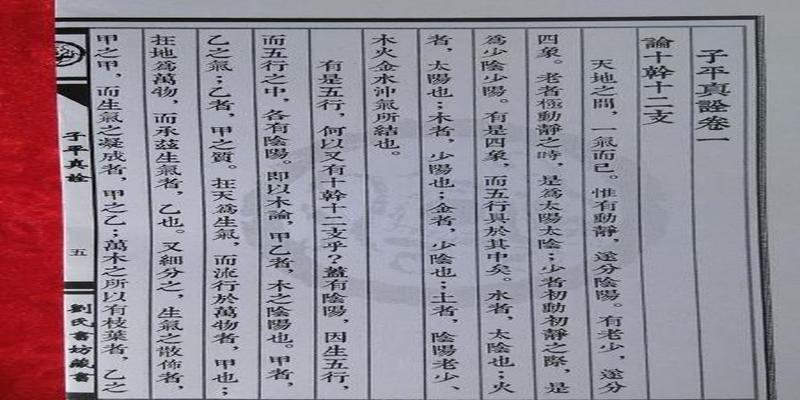 子平真詮卷一
論十幹十二支
天地之間，一氣而已。惟有動靜，遂分陰陽。有老少，遂分
四象。老者極動靜之時，是為太陽太陰；少者初動初靜之際，是
為少陰少陽。有是四象，而五行具於其中矣。水者，太陰也；火
者，太陽也；木者，少陽也；金者，少陰也；土者，陰陽老少、
木火金水沖氣所結也。
有是五行，何以又有十幹十二支乎？蓋有陰陽，因生五行，
而五行之中，各有陰陽。即以木論，甲乙者，木之陰陽也。甲者，
乙之氣；乙者，甲之質。在天為生氣，而流行於萬物者，甲也；
在地為萬物，而承茲生氣者，乙也。又細分之，生氣之散佈者，
甲之甲，而生氣之凝成者，甲之乙；萬木之所以有枝葉者，乙之
子平真詮
五
劉氏書坊藏書